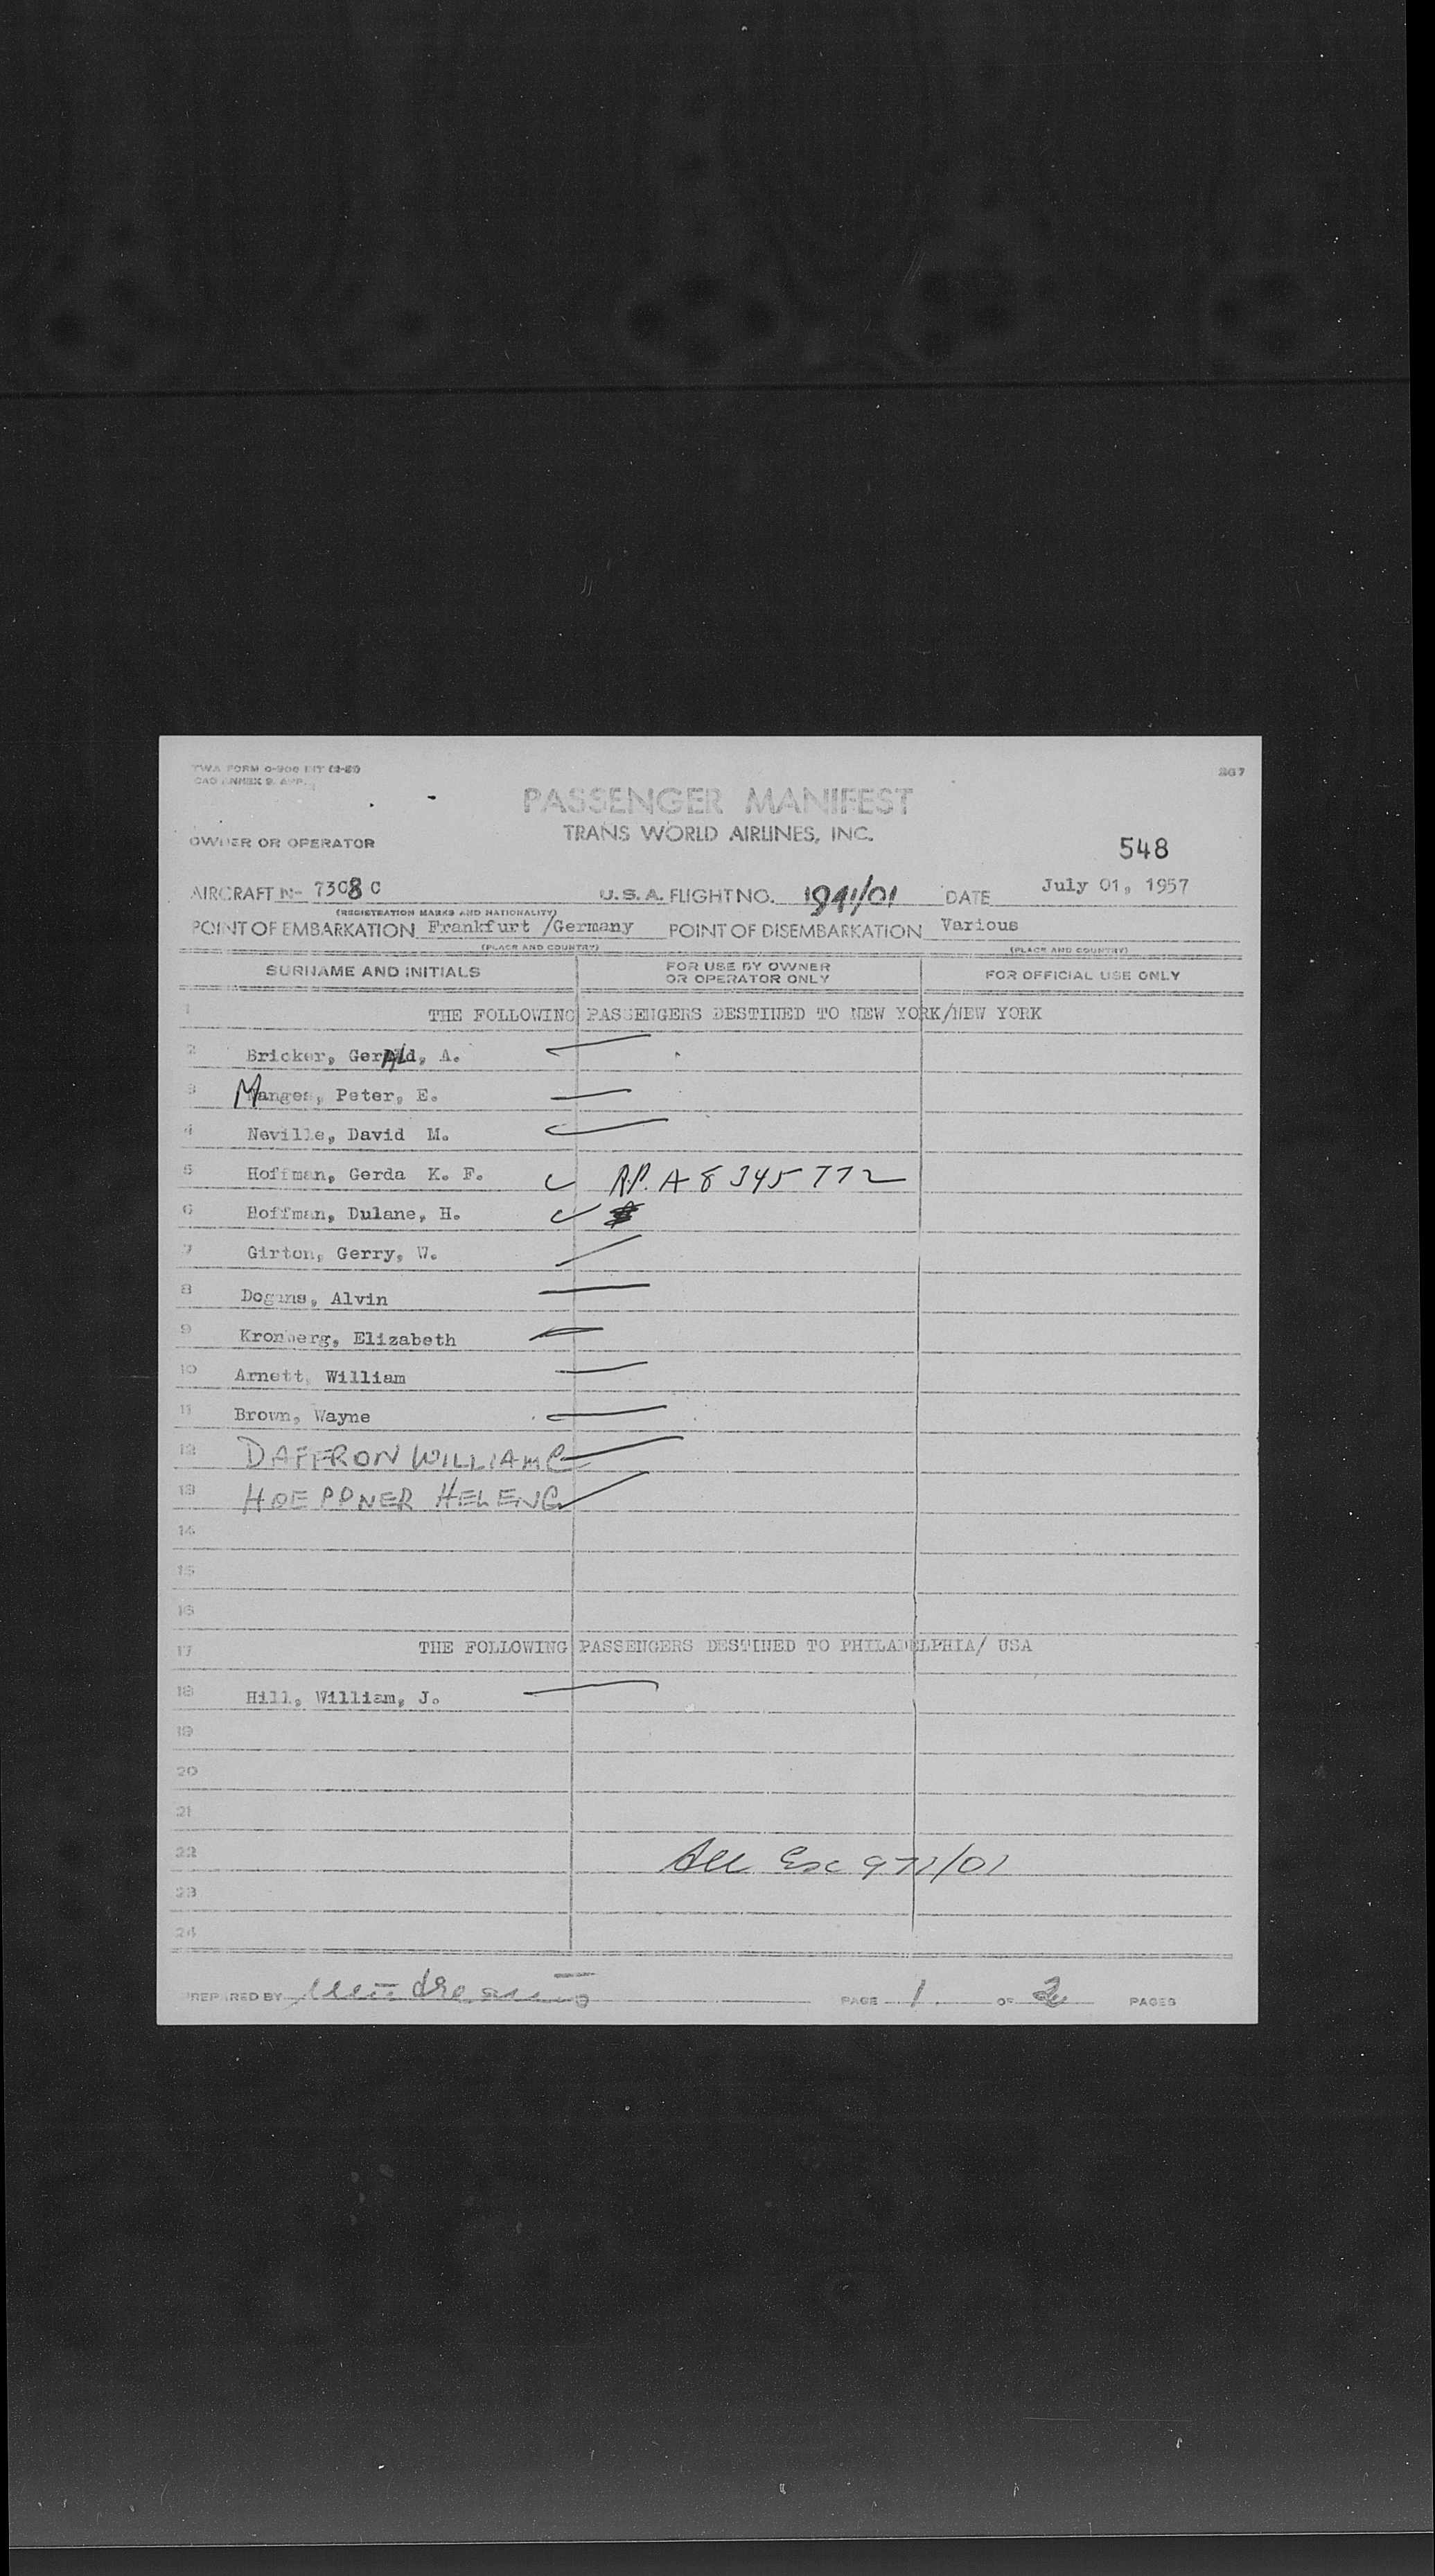 267
PASSENGER MANIFEST
TRANS WORLD AIRLINES, INC.
OWNER OR OPERATOR
548
AIRCRAFT N- 7308 C U.S.A. FLIGHT NO. 1941/01 DATE July 01, 1957
(REGISTRATION MARKS AND NATIONALITY)
POINT OF EMBARKATION Frankfurt /Germany POINT OF DISEMBARKATION Various
(PLACE AND COUNTRY) (PLACE AND COUNTRY)
SURNAME AND INITIALS FOR USE BY OWNER OR OPERATOR ONLY FOR OFFICIAL USE ONLY
1 THE FOLLOWING PASSENGERS DESTINED TO NEW YORK/NEW YORK
2 Bricker, Gerald, A.
3 Manges, Peter, E.
4 Neville, David M.
5 Hoffman, Gerda K. F. A 8 345 772
6 Hoffman, Dulane, H.
7 Girton, Gerry, W.
8 Dogans, Alvin
9 Kronberg, Elizabeth
10 Arnett, William
11 Brown, Wayne
12 DAFFRON WILLIAM C
13 HOEPPNER HELENE
14
15
16
17 THE FOLLOWING PASSENGERS DESTINED TO PHILADELPHIA/ USA
18 Hill, William, J.
19
20
21
22 All Exc 971/01
23
24
PREPARED BY PAGE 1 OF 2 PAGES